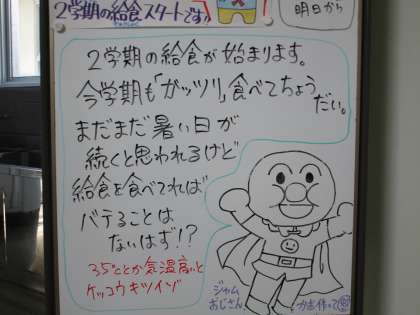 2学期の給食スタートです
きゅうしょく
明日から
2学期の給食が始まります。
今学期も「ガッツリ」食べてちょうだい。
まだまだ暑い日が
続くと思われるけど
給食を食べてれば
バテることは
ないはず!?
35℃とか気温高いと
ケッコウキツイゾ
ジャム
おじさん